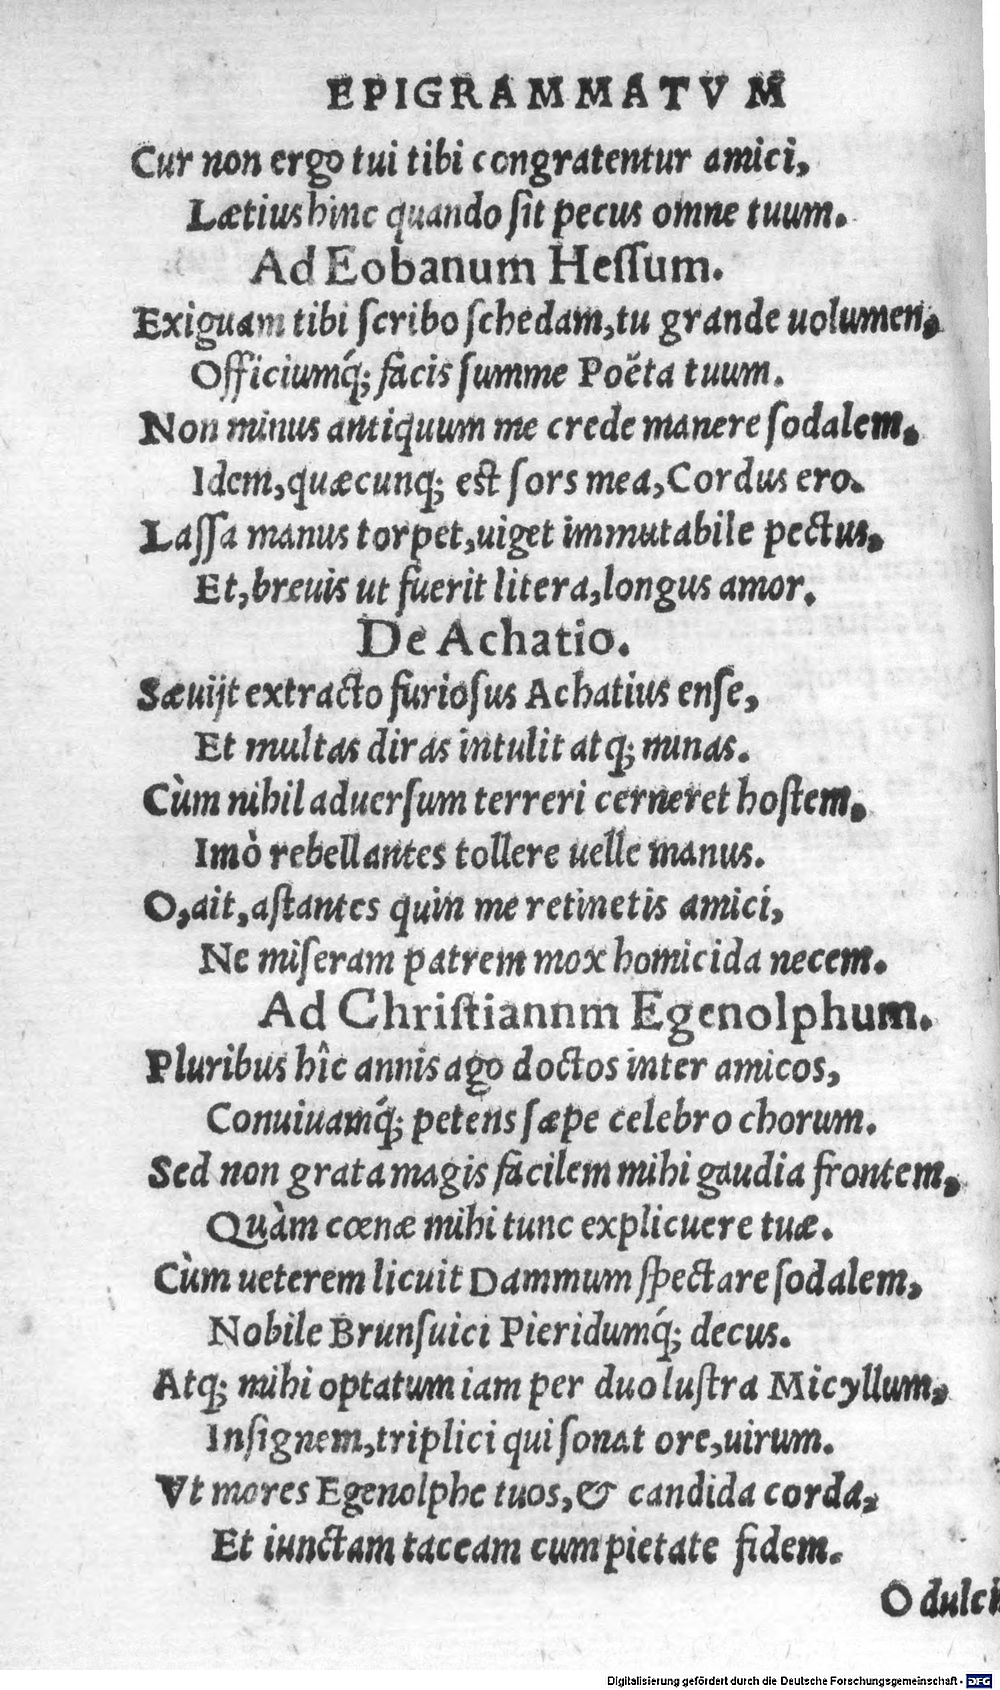 EPIGRAMMATVM
Cur non ergo tui tibi congratentur amici,
Lætius hinc quando ſit pecus omne tuum.
Ad Eobanum Heſſum.
Exiguam tibi ſcribo ſchedam, tu grande uolumen,
Officiumq́; facis ſumme Poëta tuum.
Non minus antiquum me crede manere ſodalem,
Idem, quæcunq; est ſors mea, Cordus ero.
Laſſa manus torpet, uiget immutabile pectus,
Et, breuis ut fuerit litera, longus amor.
De Achatio.
Sæuijt extracto furioſus Achatius enſe,
Et multas diras intulit atq; minas.
Cùm nihil aduerſum terreri cerneret hoſtem,
Imò rebellantes tollere uelle manus.
O, ait, aſtantes quin me retinetis amici,
Ne miſeram patrem mox homicida necem.
Ad Chriſtiannm Egenolphum.
Pluribus hîc annis ago doctos inter amicos,
Conuiuamq́; petens ſæpe celebro chorum.
Sed non grata magis facilem mihi gaudia frontem,
Quàm cœnæ mihi tunc explicuere tuæ.
Cùm ueterem licuit Dammum ſpectare ſodalem,
Nobile Brunſuici Pieridumq́; decus.
Atq; mihi optatum iam per duo luſtra Micyllum,
Inſignem, triplici qui ſonat ore, uirum.
Vt mores Egenolphe tuos, & candida corda,
Et iunctam taceam cum pietate fidem.
O dulci
Digitalisierung gefördert durch die Deutsche Forschungsgemeinschaft - DFG